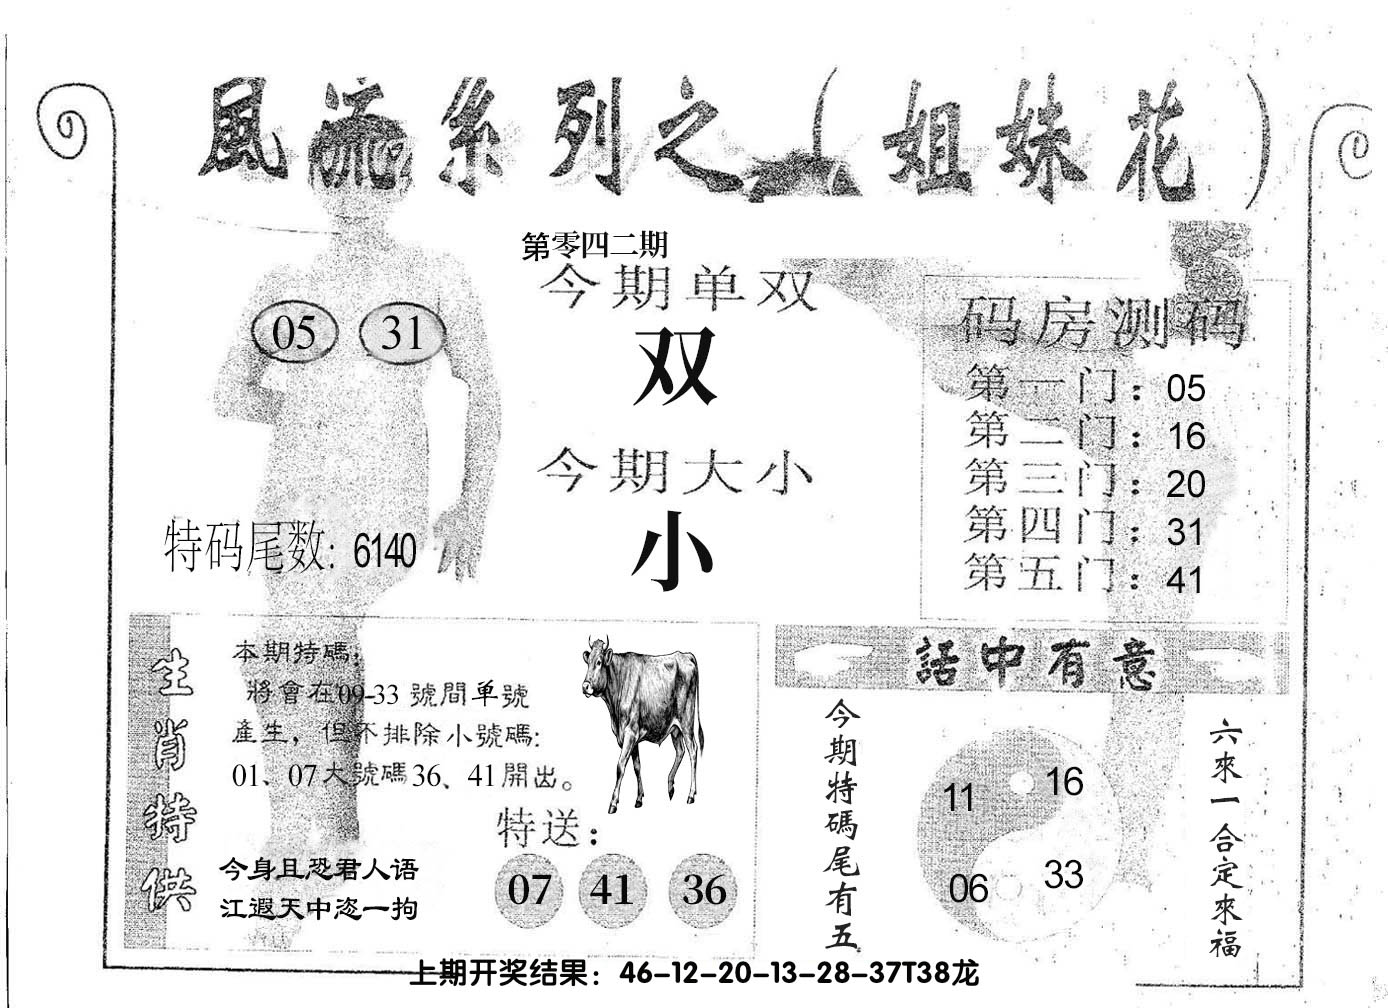 風流系列之（姐妹花）
第零四二期
今期单双
双
今期大小
小
05 31
特码尾数：6140
码房测码
第一门：05
第二门：16
第三门：20
第四门：31
第五门：41
生肖特供
本期特碼，
將會在09-33 號間单號
產生，但不排除小號碼：
01、07大號碼36、41開出。
特送：
07 41 36
今身且恐君人语
江遐天中恣一拘
話中有意
今期特碼尾有五
11 16
06 33
六來一合定來福
上期开奖结果：46-12-20-13-28-37T38龙